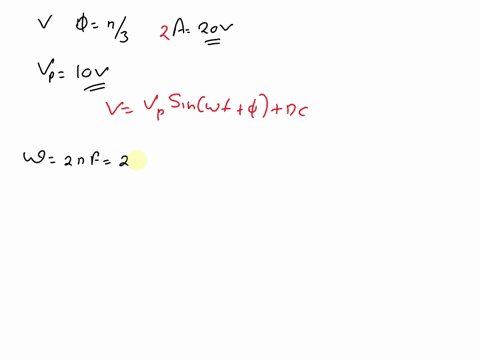 V ϕ = π/3 2A = 20V
Vp = 10V
V = Vp Sin(wt + ϕ) + DC
ω = 2πF = 2